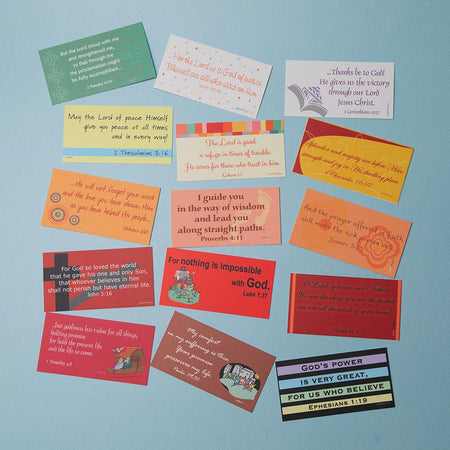 But the Lord stood with me
and strengthened me,
so that through me
the proclamation might
be fully accomplished...
2 Timothy 4:17a
For the Lord is a God of justice.
Blessed are all who wait on Him.
Isaiah 30:18
...Thanks be to God!
He gives us the victory
through our Lord
Jesus Christ.
1 Corinthians 15:57
May the Lord of peace Himself
give you peace at all times
and in every way!
2 Thessalonians 3:16
The Lord is good,
a refuge in times of trouble,
He cares for those who trust in him
Nahum 1:7
Splendor and majesty are before Him;
strength and joy in His dwelling place.
1 Chronicles 16:27
...He will not forget your work
and the love you have shown Him
as you have helped His people...
Hebrews 6:10
I guide you
in the way of wisdom
and lead you
along straight paths.
Proverbs 4:11
And the prayer offered in faith
will make the sick person well
James 5:15
For God so loved the world
that he gave his one and only Son,
that whoever believes in him
shall not perish but have eternal life.
John 3:16
For nothing is impossible
with God.
Luke 1:37
O Lord, you are our Father.
We are the clay, you are the potter;
we are all the work of your hand.
Isaiah 64:8
...but godliness has value for all things,
holding promise
for both the present life
and the life to come.
1 Timothy 4:8
My comfort
in my suffering is this:
Your promise
preserves my life.
Psalm 119:50
God's power
is very great,
for us who believe
Ephesians 1:19